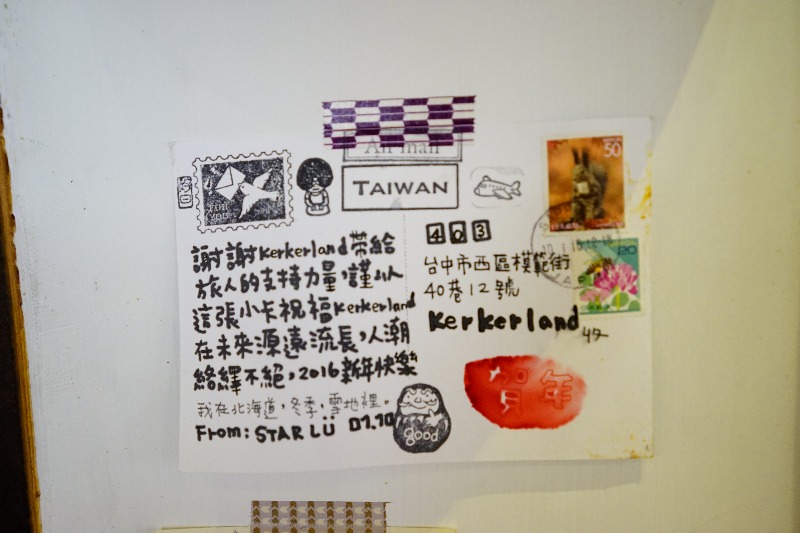 Air mail
TAIWAN
FOR YOU
50
20
403
台中市西區模範街
40巷12號
Kerkerland 收
謝謝Kerkerland帶給
旅人的支持力量,謹以
這張小卡祝福Kerkerland
在未來源遠流長,人潮
絡繹不絕,2016新年快樂
我在北海道,冬季,雪地裡。
From: STAR LÜ 01.10
good
賀年